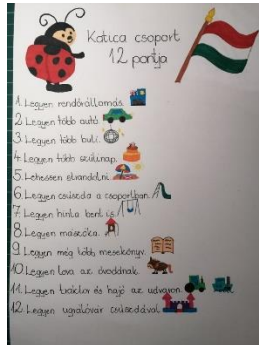 Katica csoport
12 pontja
1. Legyen rendőrállomás.
2. Legyen több autó.
3. Legyen több buli.
4. Legyen több szülinap.
5. Lehessen strandolni.
6. Legyen csúszda a csoportban.
7. Legyen hinta bent is.
8. Legyen mászóka.
9. Legyen még több mesekönyv.
10. Legyen lova az óvodának.
11. Legyen traktor és hajó az udvaron.
12. Legyen ugrálóvár csúszdával.